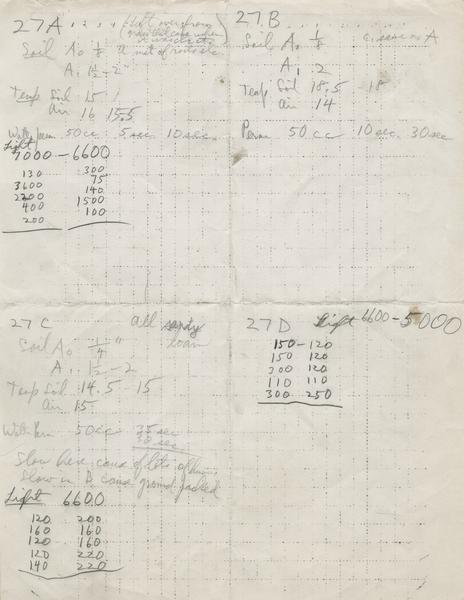 27A
Soil A₀ 1/8 a mat of roots etc
A₁ 1½-2"
Temp Soil 15
Air 16 15.5
Water perm 50cc 5 sec 10 sec
Light
7000 - 6600
130 300
3600 75
2200 140
400 1500
200 100
27.B
Soil A₀ 1/8 same as A
A₁ 2
Temp Soil 18.5 18
Air 14
Perm 50cc 10 sec 30 sec
27C All sandy
loam
Soil A₀ 1/4"
A₁ 1½-2
Temp Soil 14.5 15
Air 15
Water Perm 50cc 35 sec
30 sec
Slow here cause of lots of
Slow in D cause ground packed
Light 6600
120 200
160 160
120 160
120 220
140 220
27D Light 6600-5000
150-120
150 120
300 120
110 110
300 250